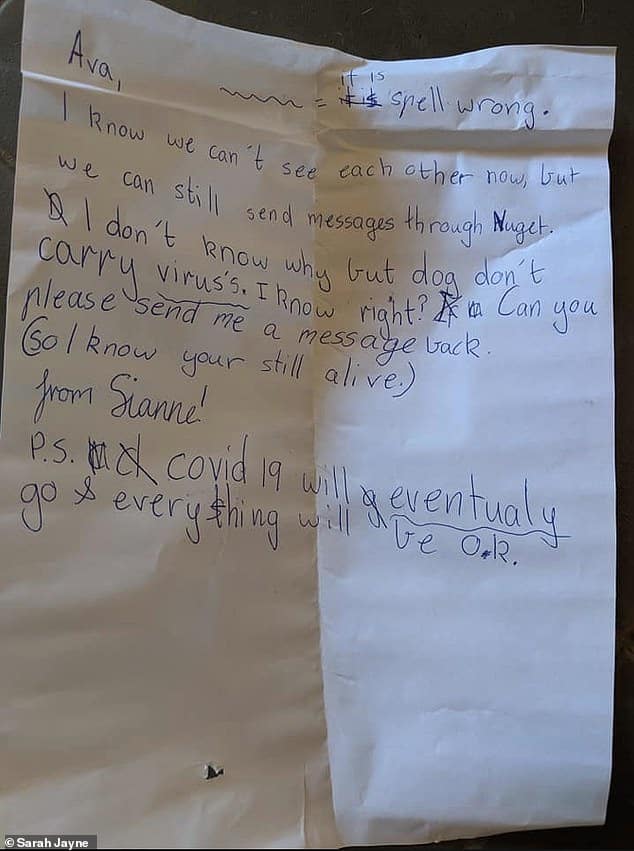 Ava,
it is
~~~~ = it is spell wrong.
I know we can't see each other now, but
we can still send messages through Nuget.
I don't know why but dog don't
carry virus's. I know right? Can you
please send me a message back.
(So I know your still alive.)
from Sianne!
P.S. covid 19 will eventualy
go & everything will be O.K.
© Sarah Jayne